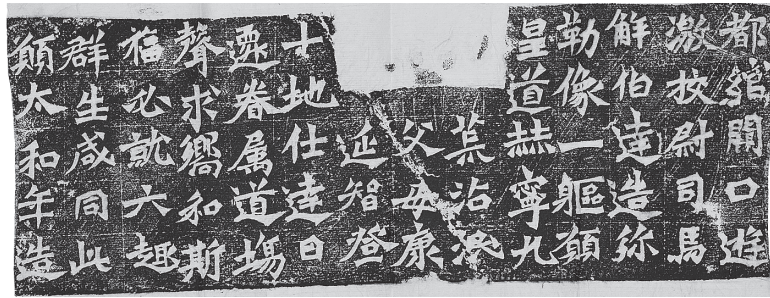 都綰闕口遊
激校尉司馬
解伯達造弥
勒像一軀願
皇道赫寧九
荒沾
父母康
延智登
十地仕達日
遷眷属道場
聲求嚮和斯
福必就六趣
群生咸同此
願太和年造